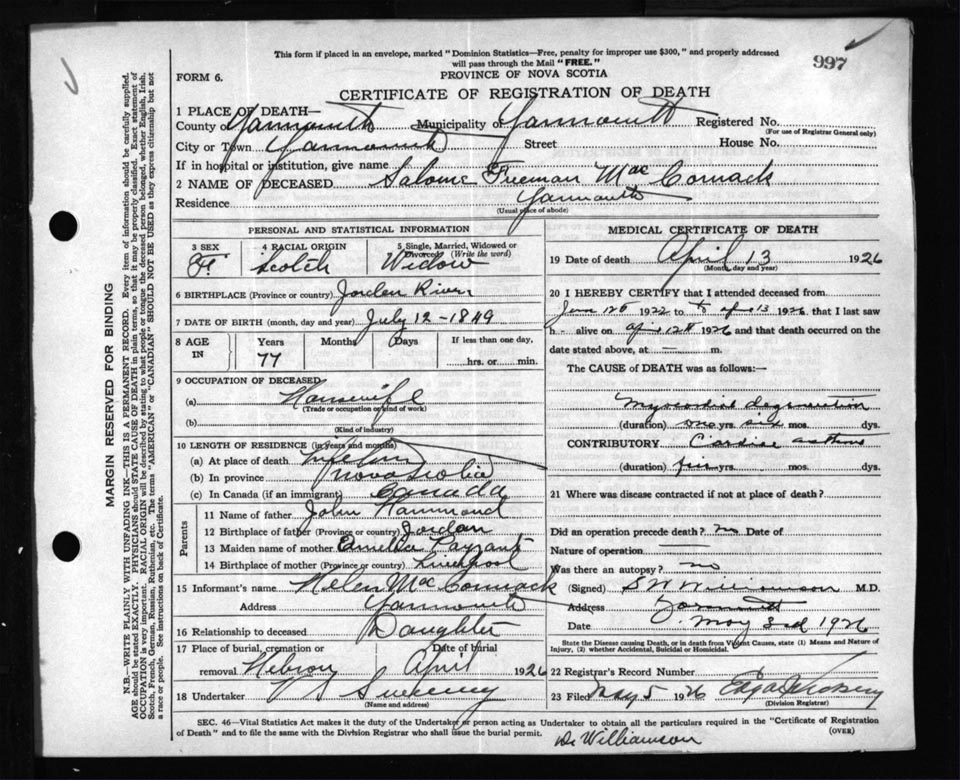 This form if placed in an envelope, marked "Dominion Statistics—Free, penalty for improper use $300," and properly addressed
will pass through the Mail "FREE."
997
FORM 6.
PROVINCE OF NOVA SCOTIA
CERTIFICATE OF REGISTRATION OF DEATH
1 PLACE OF DEATH—
County of Yarmouth Municipality of Yarmouth Registered No.
(For use of Registrar General only)
City or Town Yarmouth Street House No.
If in hospital or institution, give name
2 NAME OF DECEASED Salome Freeman Mac Cormack
Residence Yarmouth
(Usual place of abode)
PERSONAL AND STATISTICAL INFORMATION
3 SEX 4 RACIAL ORIGIN 5 Single, Married, Widowed or
Divorced (Write the word)
F Scotch Widow
6 BIRTHPLACE (Province or country) Jorden River
7 DATE OF BIRTH (month, day and year) July 12 - 1849
8 AGE IN Years Months Days If less than one day,
77 hrs. or min.
9 OCCUPATION OF DECEASED
(a) Housewife
(Trade or occupation or kind of work)
(b)
(Kind of industry)
10 LENGTH OF RESIDENCE (in years and months)
(a) At place of death
(b) In province Nova Scotia
(c) In Canada (if an immigrant) Canada
Parents
11 Name of father John Hammond
12 Birthplace of father (Province or country) Jordan
13 Maiden name of mother Amelia
14 Birthplace of mother (Province or country) Liverpool
15 Informant's name Helen Mac Cormack
Address Yarmouth
16 Relationship to deceased Daughter
17 Place of burial, cremation or Date of burial
removal Hebron April 1926
18 Undertaker Sweeney
(Name and address)
MEDICAL CERTIFICATE OF DEATH
19 Date of death April 13 1926
(Month, day and year)
20 I HEREBY CERTIFY that I attended deceased from
1922 to April 13 1926, that I last saw
h alive on April 12th 1926 and that death occurred on the
date stated above, at — m.
The CAUSE of DEATH was as follows:—
Myocardial degeneration
(duration) one yrs. six mos. dys.
CONTRIBUTORY Cardiac asthma
(duration) yrs. mos. dys.
21 Where was disease contracted if not at place of death?
Did an operation precede death? no Date of
Nature of operation
Was there an autopsy? no
(Signed) S W Williamson M.D.
Address Yarmouth
Date May 3rd 1926
State the Disease causing Death, or in death from Violent Causes, state (1) Means and Nature of
Injury, (2) whether Accidental, Suicidal or Homicidal.
22 Registrar's Record Number
23 Filed May 5 1926
(Division Registrar)
SEC. 46—Vital Statistics Act makes it the duty of the Undertaker or person acting as Undertaker to obtain all the particulars required in the "Certificate of Registration
of Death" and to file the same with the Division Registrar who shall issue the burial permit.
(OVER)
Dr Williamson
MARGIN RESERVED FOR BINDING
N.B.—WRITE PLAINLY WITH UNFADING INK—THIS IS A PERMANENT RECORD. Every item of information should be carefully supplied.
AGE should be stated EXACTLY. PHYSICIANS should STATE CAUSE OF DEATH in plain terms, so that it may be properly classified. Exact statement of
OCCUPATION is very important. RACIAL ORIGIN will be described by stating to what people or tongue the deceased person belonged, whether English, Irish,
Scotch, French, German, Russian, Ruthenian, etc. The terms "AMERICAN" or "CANADIAN" SHOULD NOT BE USED as they express citizenship but not
a race or people. See instructions on back of Certificate.